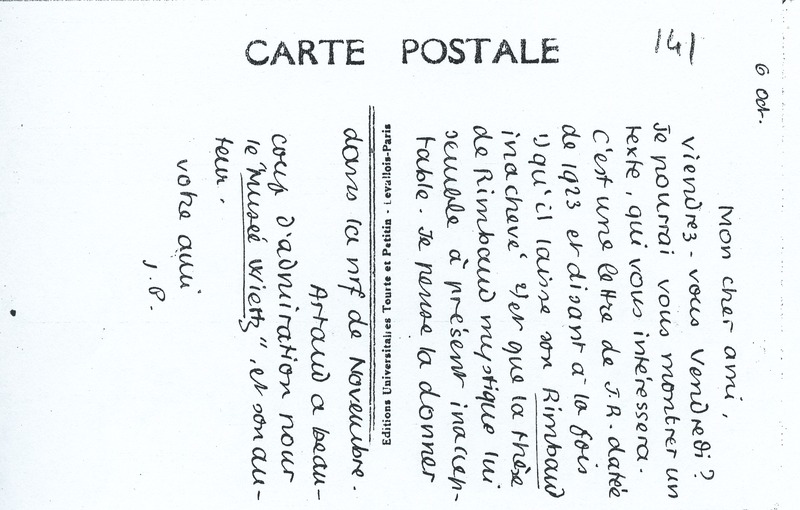 CARTE POSTALE
141
6 Oct.
Mon cher ami,
viendrez-vous Vendredi ?
Je pourrai vous montrer un
texte, qui vous intéressera.
C'est une lettre de J.R. datée
de 1923 et disant à la fois
1) qu'il laisse son Rimbaud
inachevé 2) et que la thèse
de Rimbaud mystique lui
semble à présent inaccep-
table. Je pense la donner
Editions Universitaires Tourte et Petitin - Levallois-Paris
dans la nrf de Novembre.
Artaud a beau-
coup d'admiration pour
le "Musée Wiertz", et son au-
teur.
votre ami
J. P.